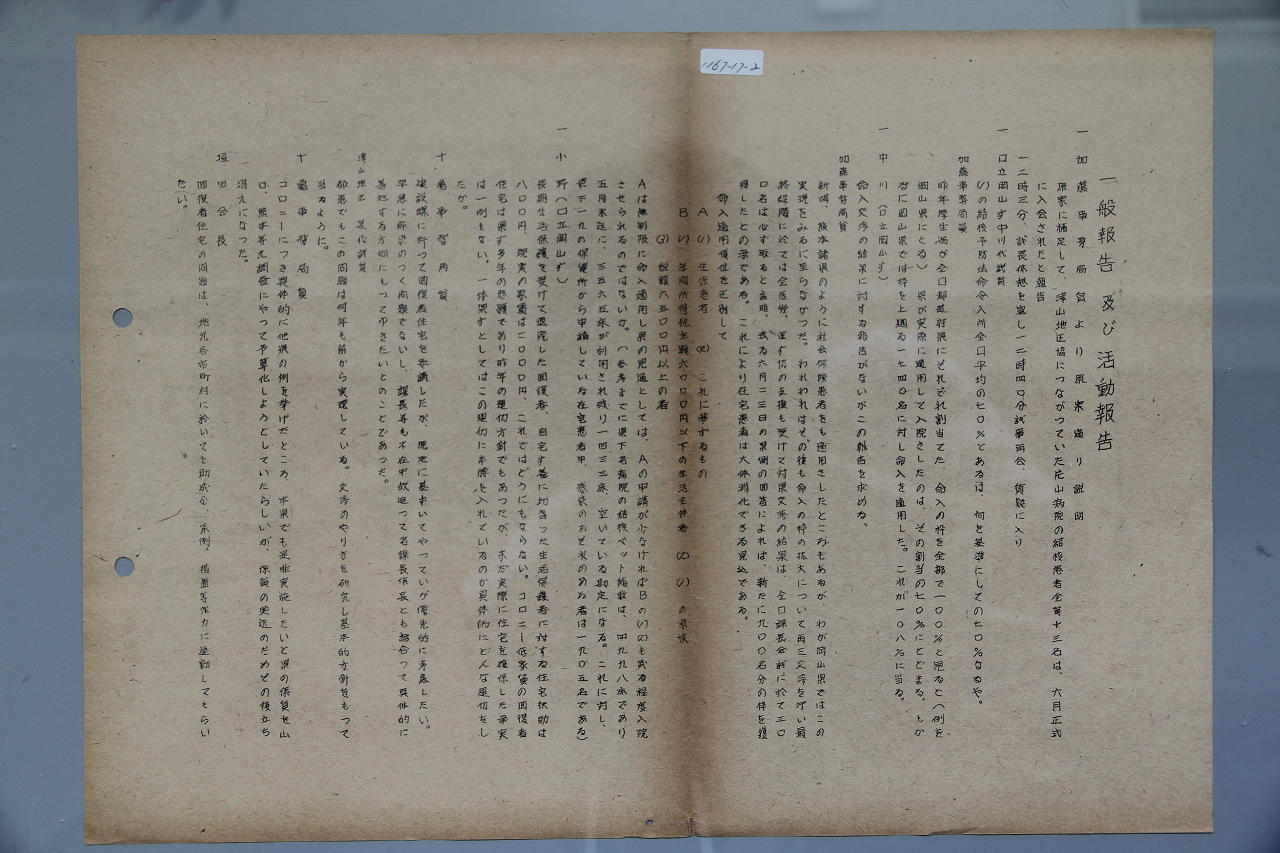 1167-17-2
一般報告及び活動報告
一 加藤事務局員より原案通り説明
原案に補足して、津山地区協につながつていた片山病院の結核患者全員十三名は、六月正式
に入会されたと報告
一二時三分、議長休憩を宣し一二時四〇分議事再会、質疑に入り
一 口立岡山ず中川代議員
(ノ)の結核予防法命令入所全口平均の七〇%とあるは、何を基準にしての七〇%なるや。
加藤事務局員
昨年厚生省が全口都道府県にそれぞれ割当てた、命入の枠を全部で一〇〇%と見ると(例を
岡山県にとる)県が実際に適用して入院さしたのは、その割当の七〇%にとどまる。しか
るに岡山県では枠を上廻る一七四〇名に対し命入を適用した。これが一〇八%に当る。
一 中川(口立岡山ず)
命入交渉の結果に対する報告がないがこの報告を求める。
加藤事務局員
新潟、熊本諸県のように社会保険患者をも適用さしたところもあるが、わが岡山県ではこの
実現をみるに至らなかつた。われわれはその後も命入の枠の拡大について再三交渉を行い最
終段階に於ては全医労、医ず協の支援も受けて対県交渉の結果は、全口課長会議に於て三〇
〇名は必ず取ると言明、去る六月二三日の県側の回答によれば、新たに九〇〇名分の枠を獲
得したとの事である。これにより在宅患者は大体消化できる見込である。
命入適用順位を区別して
A (1) 生保患者 (2) これに準ずるもの
B (1) 年間所得税年額六〇〇〇円以下の生活主体者 (2) (1)の家族
(3) 税額六五〇〇円以上の者
Aは無制限に命入適用し県の見通としては、Aの申請が少なければBの(1)(2)も或る程度入院
させられるのではないか。(参考までに県下各病院の結核ベット総数は、四九九八床であり
五月末迄に、三五六五床が利用され残り一四三三床、空いている勘定になる。これに対し、
県下一九の保健所から申請している在宅患者中、感染のおそれのある者は一九〇五名である)
一 小野(口立岡山ず)
長期生活保護を受けて退院した回復者、自宅ず養に切替つた生活保護者に対する住宅扶助は
八〇〇円、現実の家賃は二〇〇〇円、これではどうにもならない。コロニー低家賃の回復者
住宅は県ず多年の悲願であり昨年の運動方針でもあつたが、未だ実際に住宅を確保した事実
は一例もない。一体県ずとしてはこの運動に本腰を入れているのか具体的にどんな運動をし
たか。
十亀事務局員
建設課に行つて回復者住宅を要請したが、規定に基ずいてやつていが優先的に考慮したい。
早急に解決のつく問題でないし、課長等も不在中故追つて各課長係長とも話合つて具体的に
善処する方向にもつてゆきたいとのことであつた。
津山地区 県代議員
都患でもこの問題は何年も前から実現している。交渉のやり方を研究し基本的方針をもつて
当るように。
十亀事務局員
コロニーにつき具体的に他県の例を挙げたところ、本県でも是非実施したいと県の係員も山
口、熊本等を調査にやつて予算化しようとしていたらしいが、係員の更迭のためその後立ち
消えになつた。
垣田会長
回復者住宅の問題は、地元各市町村に於いても助成金、条例、措置等強力に運動してもらい
たい。